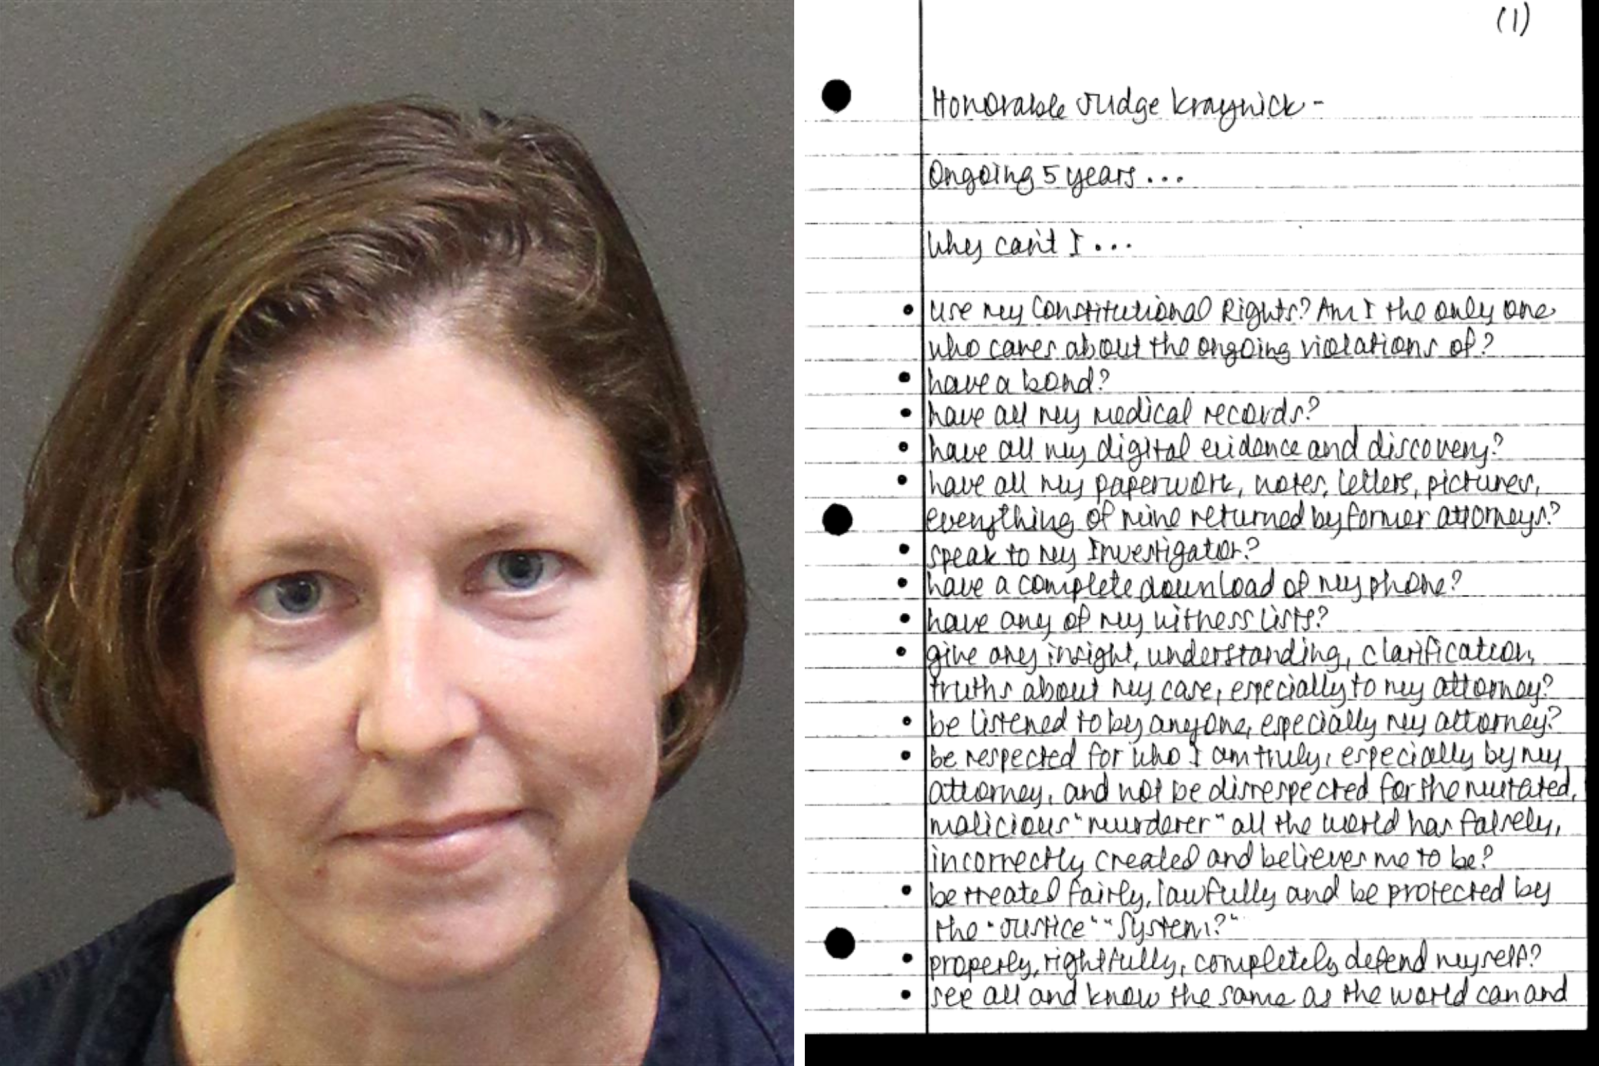 (1)
Honorable Judge Kraynick -
Ongoing 5 years...
Why can't I...
• use my Constitutional Rights? Am I the only one
who cares about the ongoing violations of?
• have a bond?
• have all my medical records?
• have all my digital evidence and discovery?
• have all my paperwork, notes, letters, pictures,
everything of mine returned by former attorneys?
• speak to my Investigator?
• have a complete download of my phone?
• have any of my witness lists?
• give any insight, understanding, clarification,
truths about my case, especially to my attorney?
• be listened to by anyone, especially my attorney?
• be respected for who I am truly, especially by my
attorney, and not be disrespected for the mutated,
malicious "murderer" all the world has falsely,
incorrectly created and believes me to be?
• be treated fairly, lawfully and be protected by
the "Justice" "System?"
• properly, rightfully, completely defend myself?
• see all and know the same as the world can and